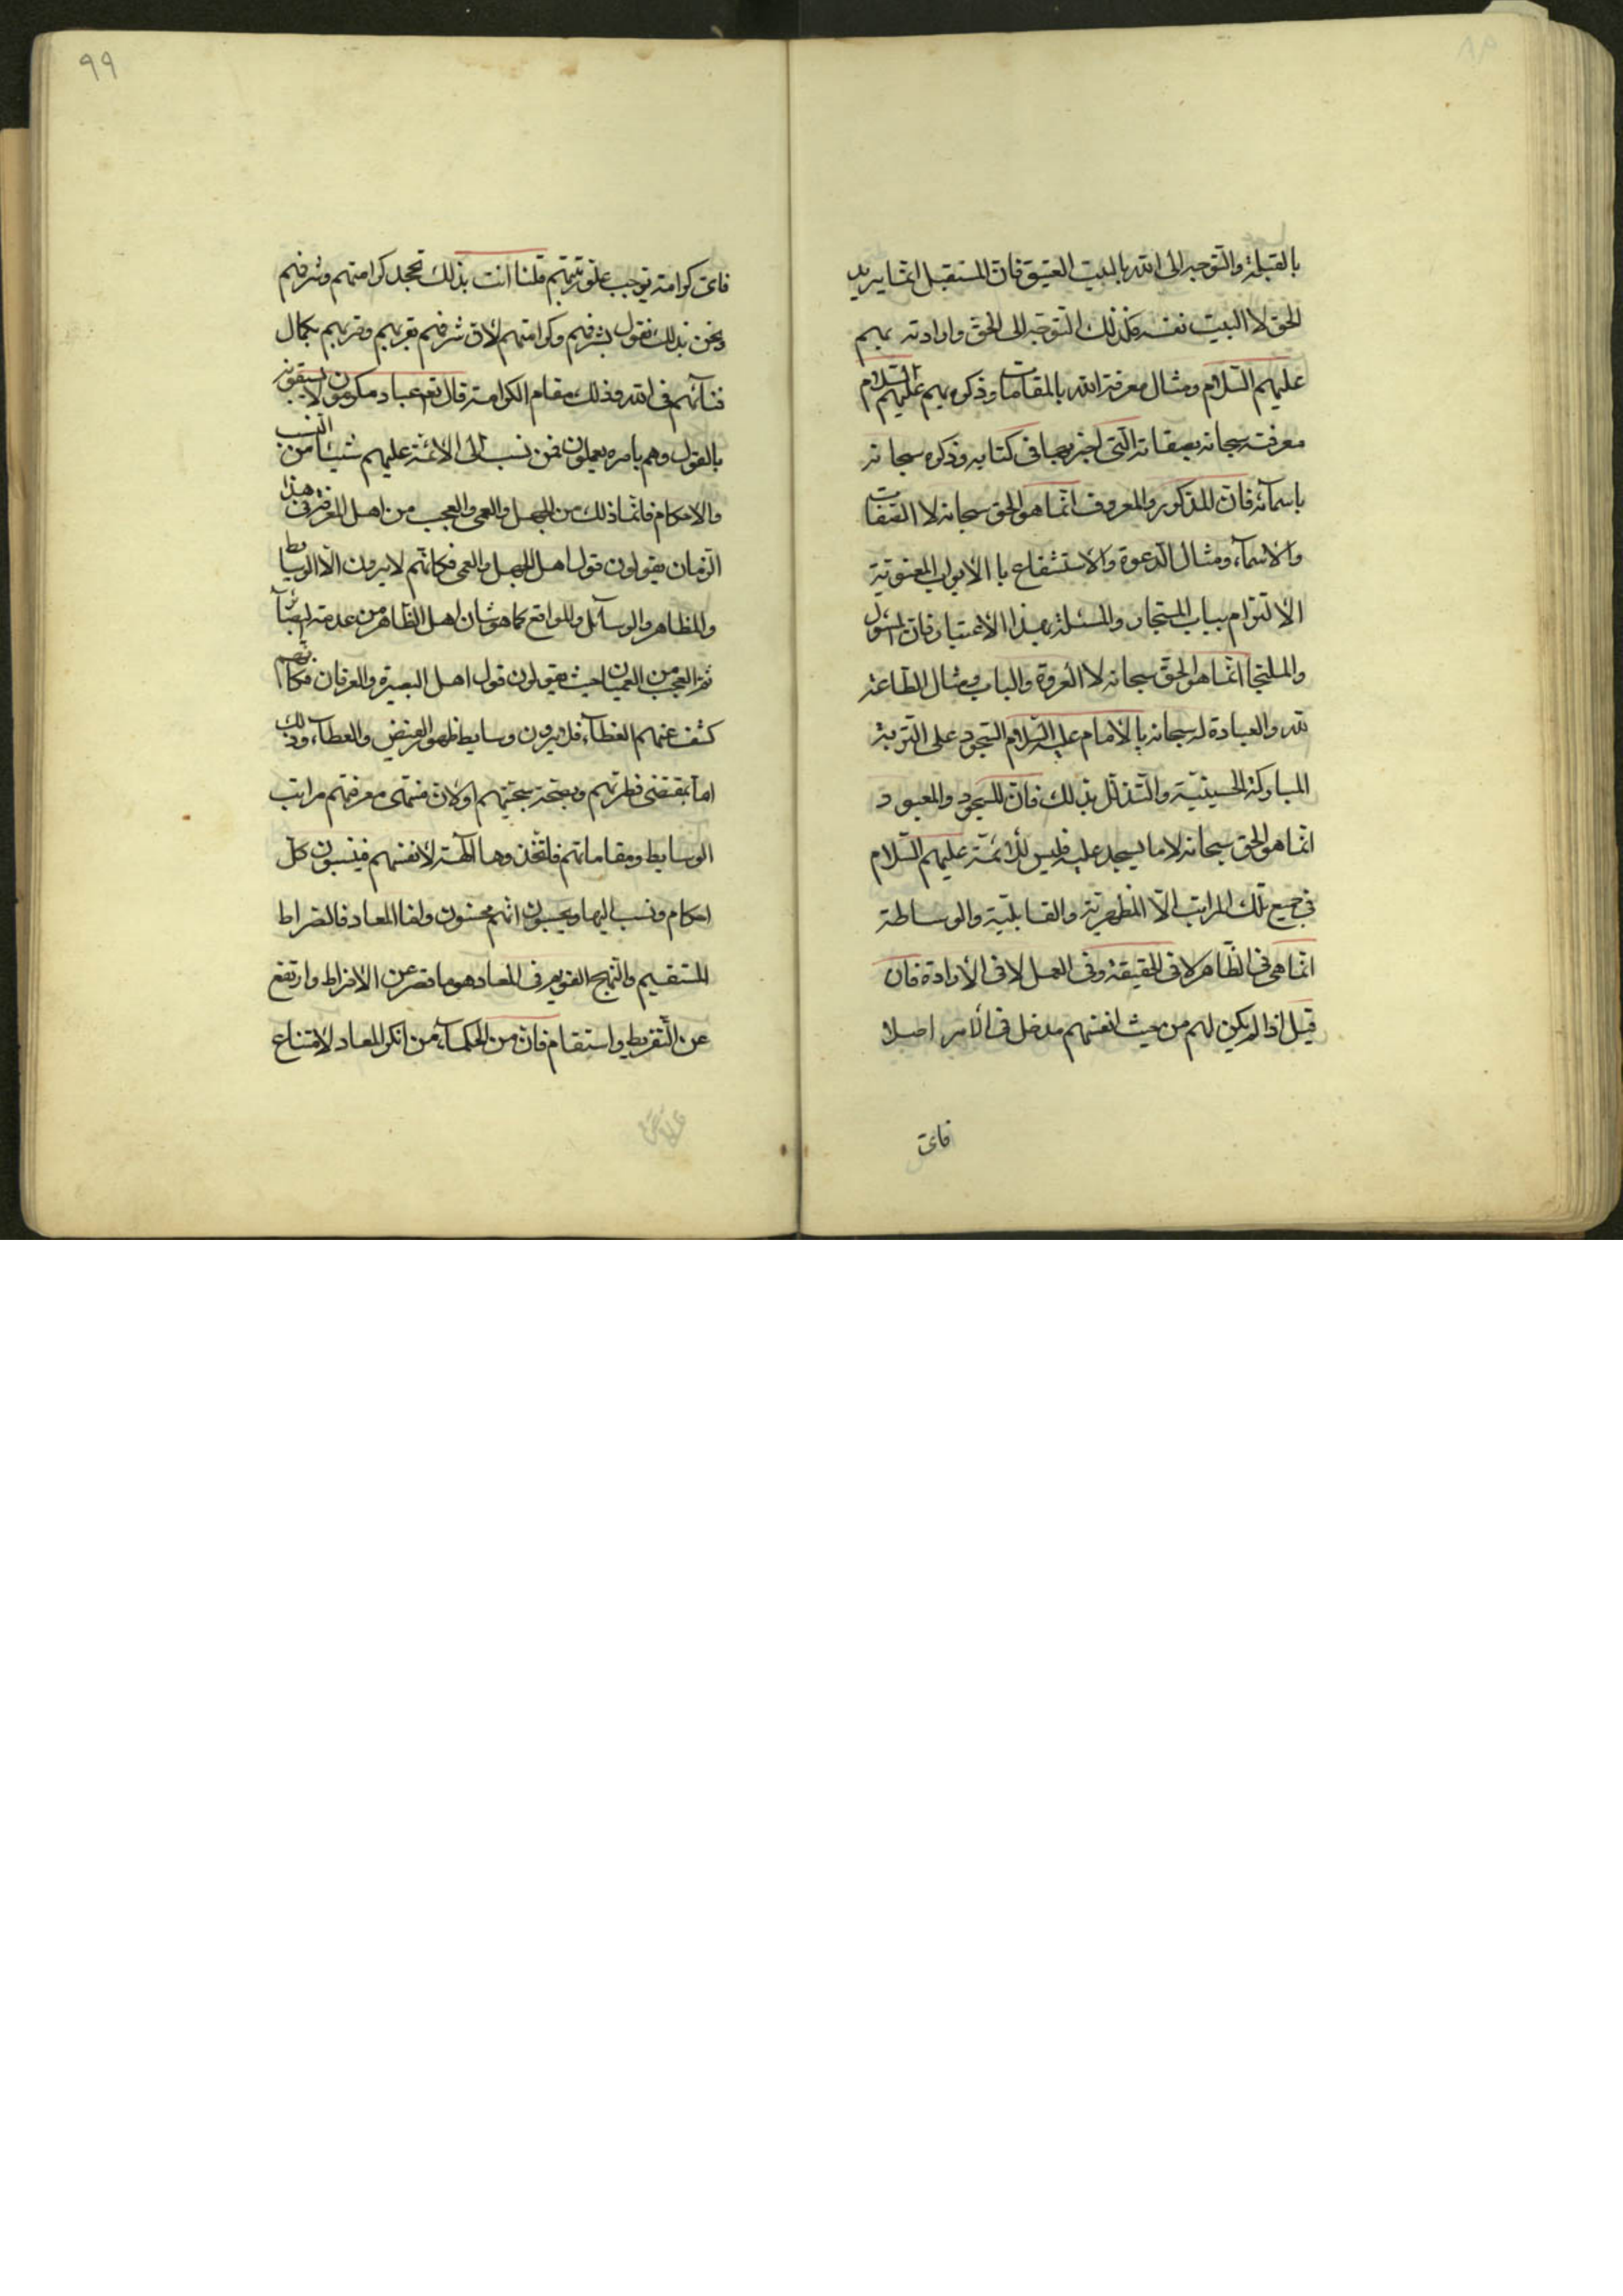 بالقبلة والتوجه الى الله بالبيت العتيق فان المستقبل انما يريد
الحق لا البيت نفسه فكذلك التوجه الى الحق وارادته بهم
عليهم السلام ومثال معرفة الله بالمقامات وذكره بهم عليهم السلام
معرفته سبحانه بصفاته التى اخبر بها فى كتابه وذكره سبحانه
باسمآئه فان المذكور والمعروف انما هو الحق سبحانه لا الصفات
والاسمآء ومثال الدعوة والاستشفاع با الأبواب المعنوية
الالتزام بباب المستجار والمسئلة بهذا الأعتبار فان المسؤل
والملتجا انما هو الحق سبحانه لا العروة والباب ومثال الطاعة
لله والعبادة له سبحانه بالأمام عليه السلام السجود على التربة
المباركة الحسينية والتذلل بذلك فان المسجود والمعبود
انما هو الحق سبحانه لا ما يسجد عليه فليس للأئمة عليهم السلام
فى جميع تلك المراتب الا المظهرية والقابلية والوساطة
انما هى فى الظاهر لا فى الحقيقة وفى العمل لا فى الأرادة فان
قيل اذا لم يكن لهم من حيث انفسهم مدخل فى الأمر اصلا
فاى
٩٩
فاى كرامة توجب علو رتبتهم قلنا انت بذلك تجحد كرامتهم وشرفهم
ونحن بذلك نقول بشرفهم وكرامتهم لأن شرفهم بقربهم وقربهم بكمال
فنآئهم فى الله وذلك مقام الكرامة قال تع عباد مكرمون لا يسبقونه
بالقول وهم بامره يعملون فمن نسب الى الائمة عليهم شيئا من النسب
والاحكام فانما ذلك من الجهل والعمى والعجب من اهل المعرفة فى هذا
الزمان يقولون قول اهل الجهل والعمى فكانهم لا يرون الا الوسايط
والمظاهر والوسآئل والمواقع كما هو شان اهل الظاهر من عدمة البصآئر
ثم العجب من العميان حيث يقولون قول اهل البصيرة والعرفان فكانهم
كشف عنهم الغطآء فلا يرون وسايط ظهور الفيض والعطآء وذلك
اما بمقتضى فطرتهم وبصحة سجيتهم او كان منتهى معرفتهم مراتب
الوسايط ومقاماتهم فاتخذوها آلهة لأنفسهم فينسبون كل
احكام ونسب اليها ويحسبون انهم محسنون ولقا المعاد فالصراط
المستقيم والنهج القويم فى المعاد هو ما قصر عن الأفراط وارتفع
عن التفريط واستقام فان من الحكمآء من انكر المعاد لامتناع